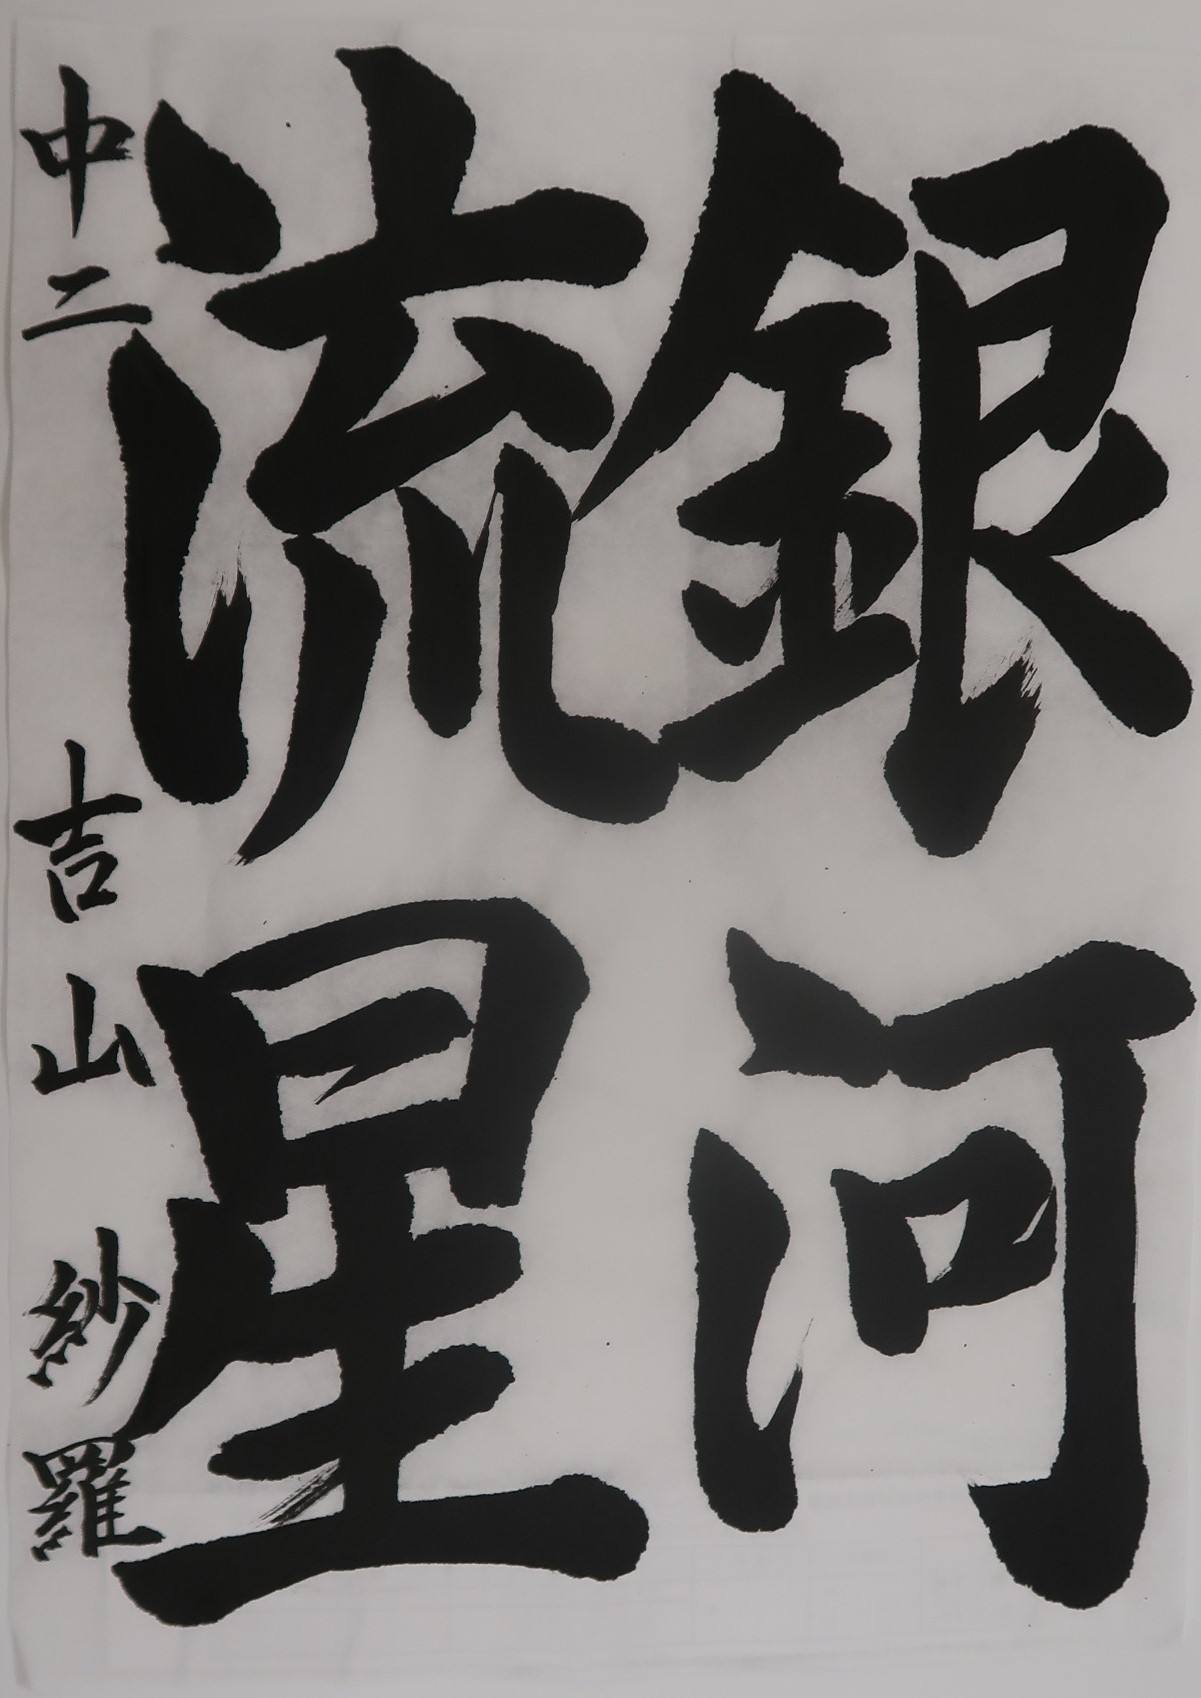 銀河
流星
中二 吉山紗羅